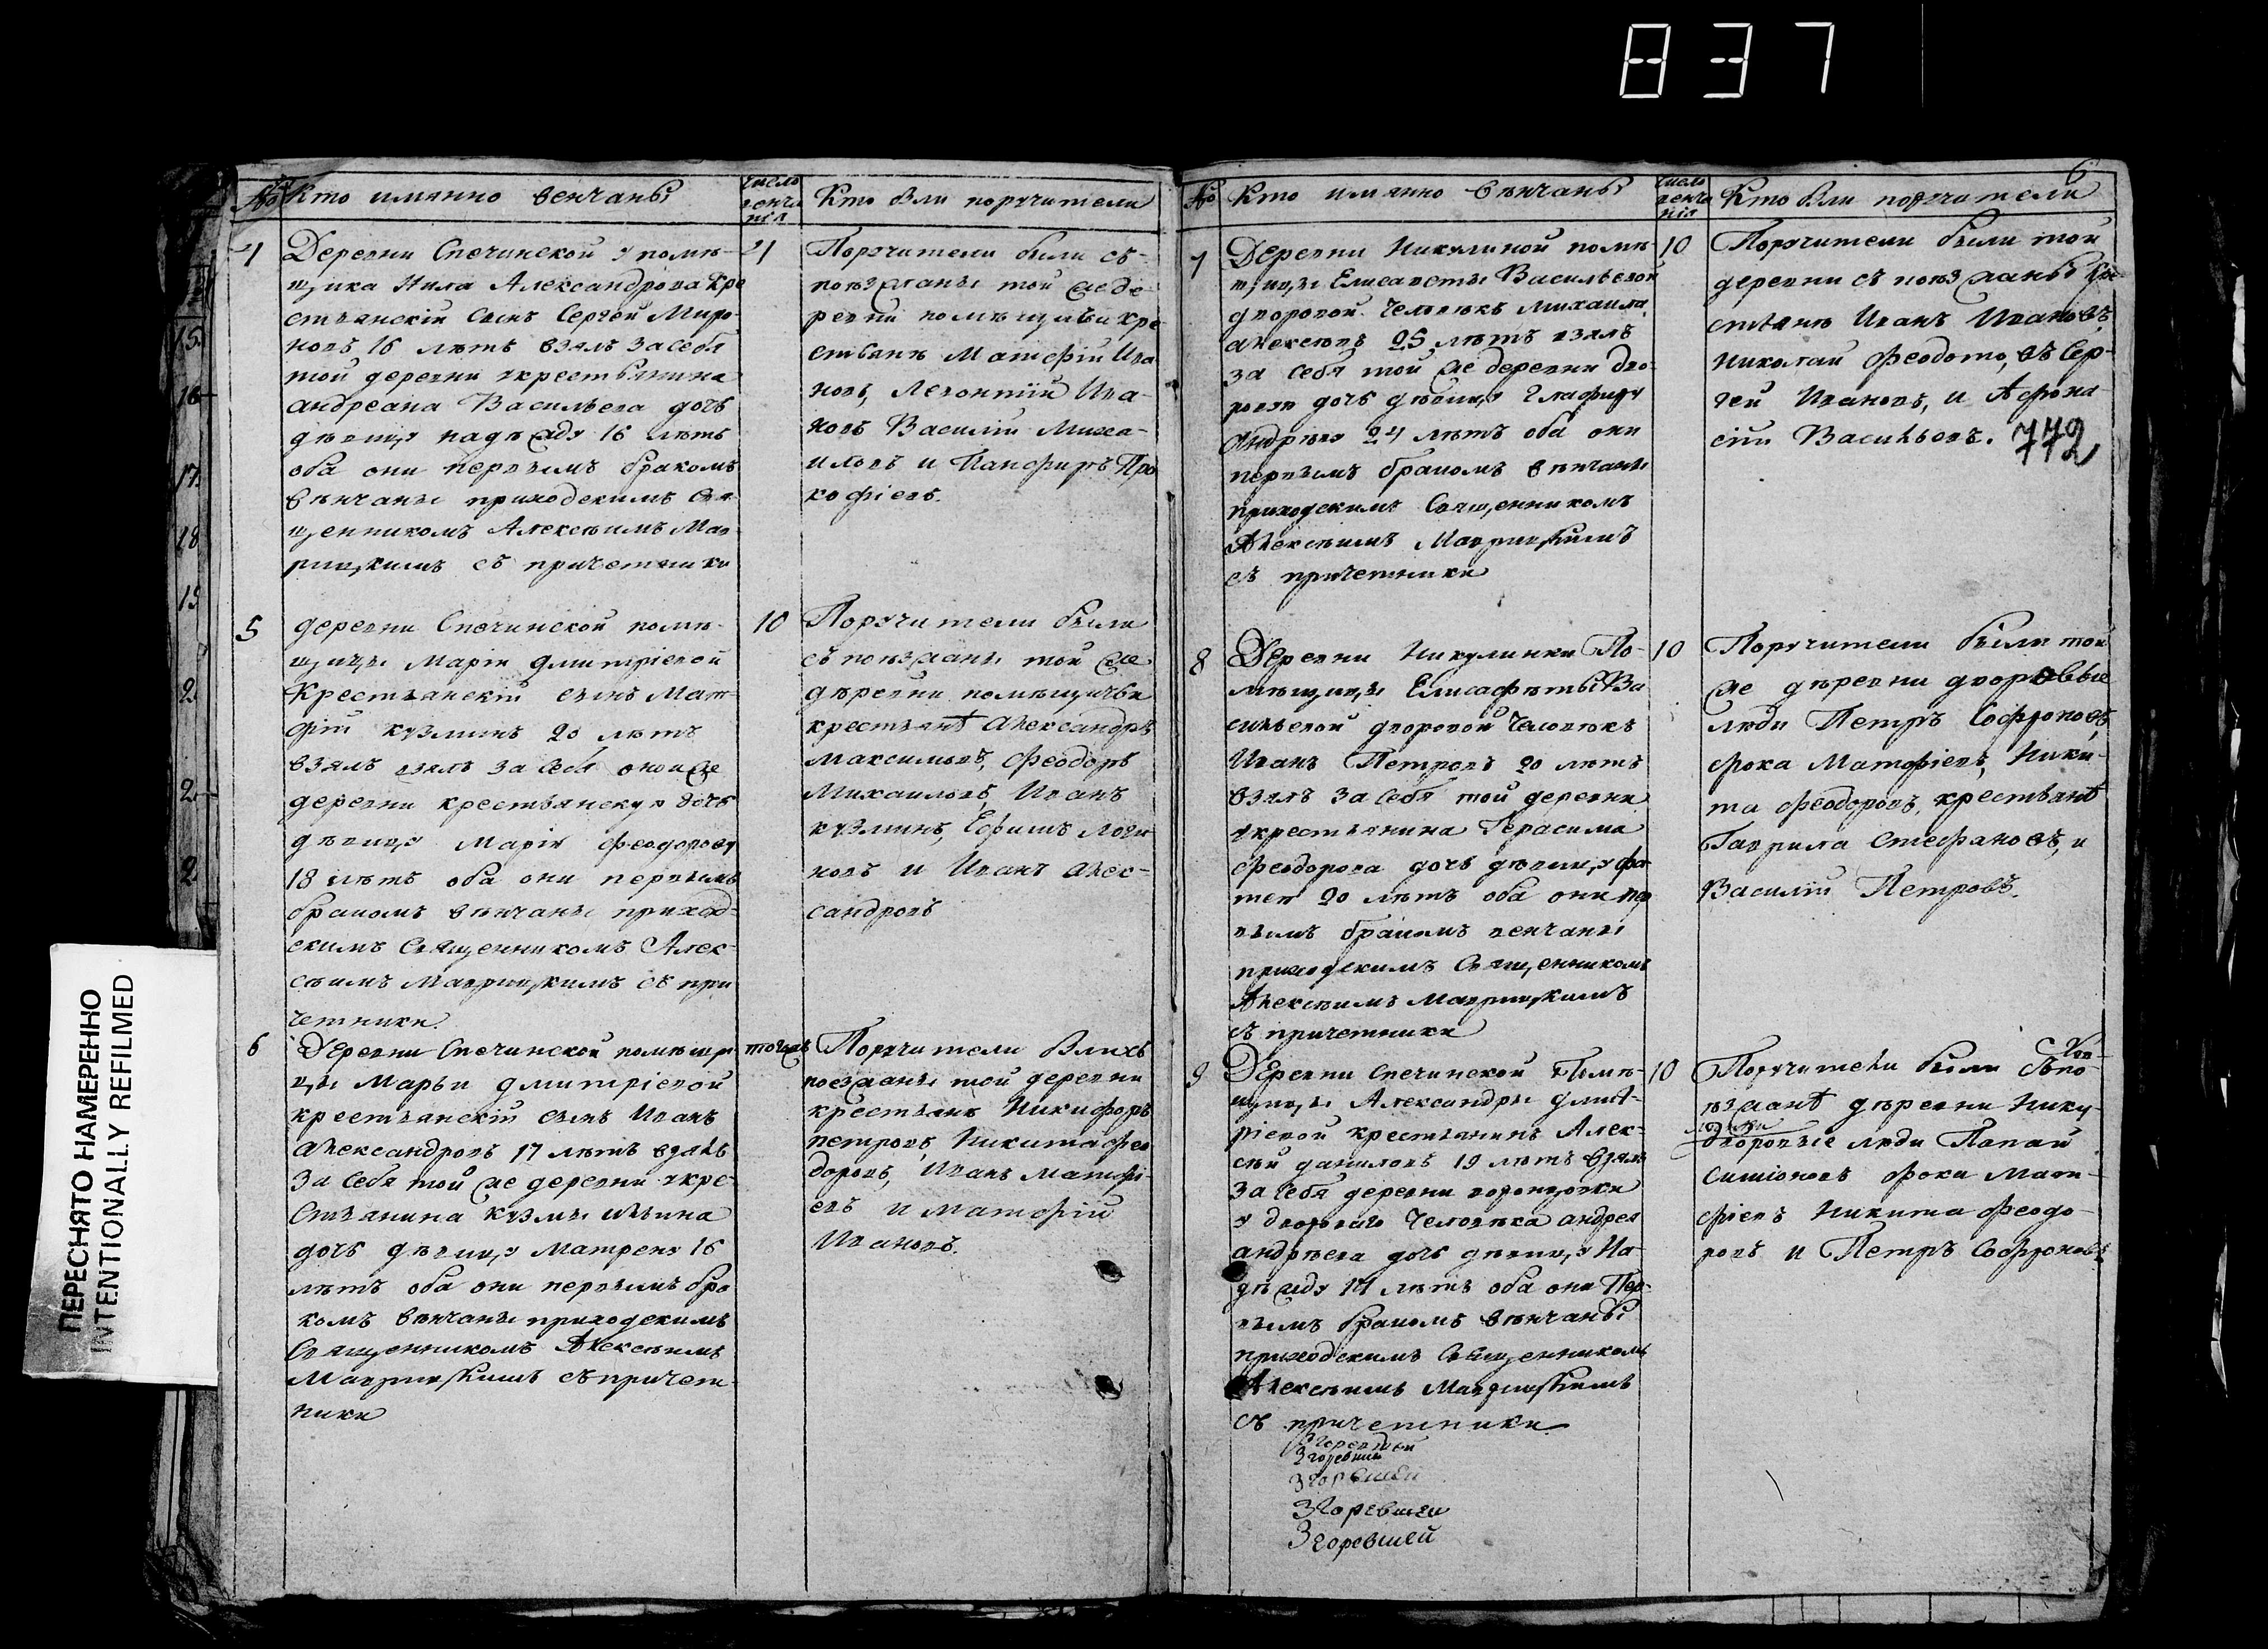 837
6
№
Кто имянно венчаны
число
венча
нія
Кто были поручители
4
Деревни Спечинской у помѣ-
щика Нила Александрова кре
стьянскій сынъ Сергей Миро-
новъ 16 лѣтъ взялъ за себя
той деревни у крестьянина
андреана Васильева дочь
дѣвицу надѣжду 16 лѣтъ
оба они первымъ бракомъ
вѣнчаны приходскимъ Свя-
щенникомъ Алексѣимъ Мав-
рицкимъ съ причетники
4
Поручители были съ-
поѣзжаны той же де-
ревни помѣщичьи кре-
стьянѣ Матфій Ива
новъ, Леонтій Ива-
новъ Василій Миха-
иловъ и Панфиръ Про
кофіевъ.
5
деревни Спечинской помѣ-
щицы Маріи дмитріевой
Крестьянскій сынъ Мат-
фій кузминъ 20 лѣтъ
взялъ взялъ за себя оной же
деревни крестьянскую дочь
дѣвицу Марію феодорову
18 лѣтъ оба они первымъ
бракомъ вѣнчаны приход-
скимъ Священникомъ Алек-
сѣимъ Маврицкимъ съ при
четники.
10
Поручители были
съ поѣзжаны той же
дѣревни помѣщичьи
крестьянѣ Александръ
Максимовъ, Феодоръ
Михаиловъ, Иванъ
кузминъ, Ефимъ Логи
новъ и Иванъ Алек-
сандровъ
6
Деревни Спечинской помѣщи
цы Марьи дмитріевой
крестьянскій сынъ Иванъ
Александровъ 17 лѣтъ взялъ
за себя той же деревни у кре-
стьянина кузмы ильина
дочь дѣвицу Матрену 16
лѣтъ оба они первымъ бра
комъ вѣнчаны приходскимъ
Священникомъ Алексѣимъ
Маврицкимъ съ причет-
ники
тогожъ
Поручители были съ
поезжаны той деревни
крестьянѣ Никифоръ
петровъ, Никита фео
доровъ, Иванъ Матфі-
евъ и Матфій
Ивановъ.
№
Кто имянно вѣнчаны
число
венча
нія
Кто были поручители
7
Деревни Никулиной помѣ-
щицы Елисаветы Васильевой
дворовой человѣкъ михаила
алексѣевъ 25 лѣтъ взялъ
за себя той же деревни дво-
роваго дочь дѣвицу Глафиру
Андрѣеву 24 лѣтъ оба они
первымъ бракомъ вѣнчаны
приходскимъ Священникомъ
Алексѣимъ Маврицкимъ
съ причетники
10
Поручители были той
деревни съ поѣзжаны кре-
стьянѣ Иванъ Ивановъ,
Николай Феодотовъ Сер-
гей Ивановъ, и Афона
сій Васильевъ.
772
8
Деревни Никулинки По-
мѣщицы Елисафѣты Ва
сильевой дворовой человѣкъ
Иванъ Петровъ 20 лѣтъ
взялъ за себя той деревни
у крестьянина Герасима
Феодорова дочь дѣвицу фо
тею 20 лѣтъ оба они пер
вымъ бракомъ венчаны
приходскимъ Священникомъ
Алексѣимъ Маврицкимъ
съ причетники
10
Поручители были той
же дѣревни дворовые
люди Петръ Софроновъ,
фока Матфіевъ, Ники-
та феодоровъ, крестьянѣ
Гаврила Стефановъ, и
Василій Петровъ.
9
Деревни Спечинской Помѣ-
щицы Александры дмит-
ріевой крестьянинъ Алек-
сѣй даниловъ 19 лѣтъ взялъ
за себя деревни воронцовки
у двороваго человѣка андрея
андрѣева дочь дѣвицу На-
дѣжду 17 лѣтъ оба они Пер-
вымъ бракомъ вѣнчаны
приходскимъ Священникомъ
Алексѣимъ Маврицкимъ
съ причетники
Згоревшей
Згоревшей
Згоревшей
Згоревшей
10
Поручители были съ по-
ѣзжанѣ дѣревни Нику-
линки
дворовые люди Папай
Симіоновъ фока Мат-
фіевъ Никита Феодо-
ровъ и Петръ Софроновъ
15
16
17
18
19
2
2
2
ПЕРЕСНЯТО НАМЕРЕННО
INTENTIONALLY REFILMED